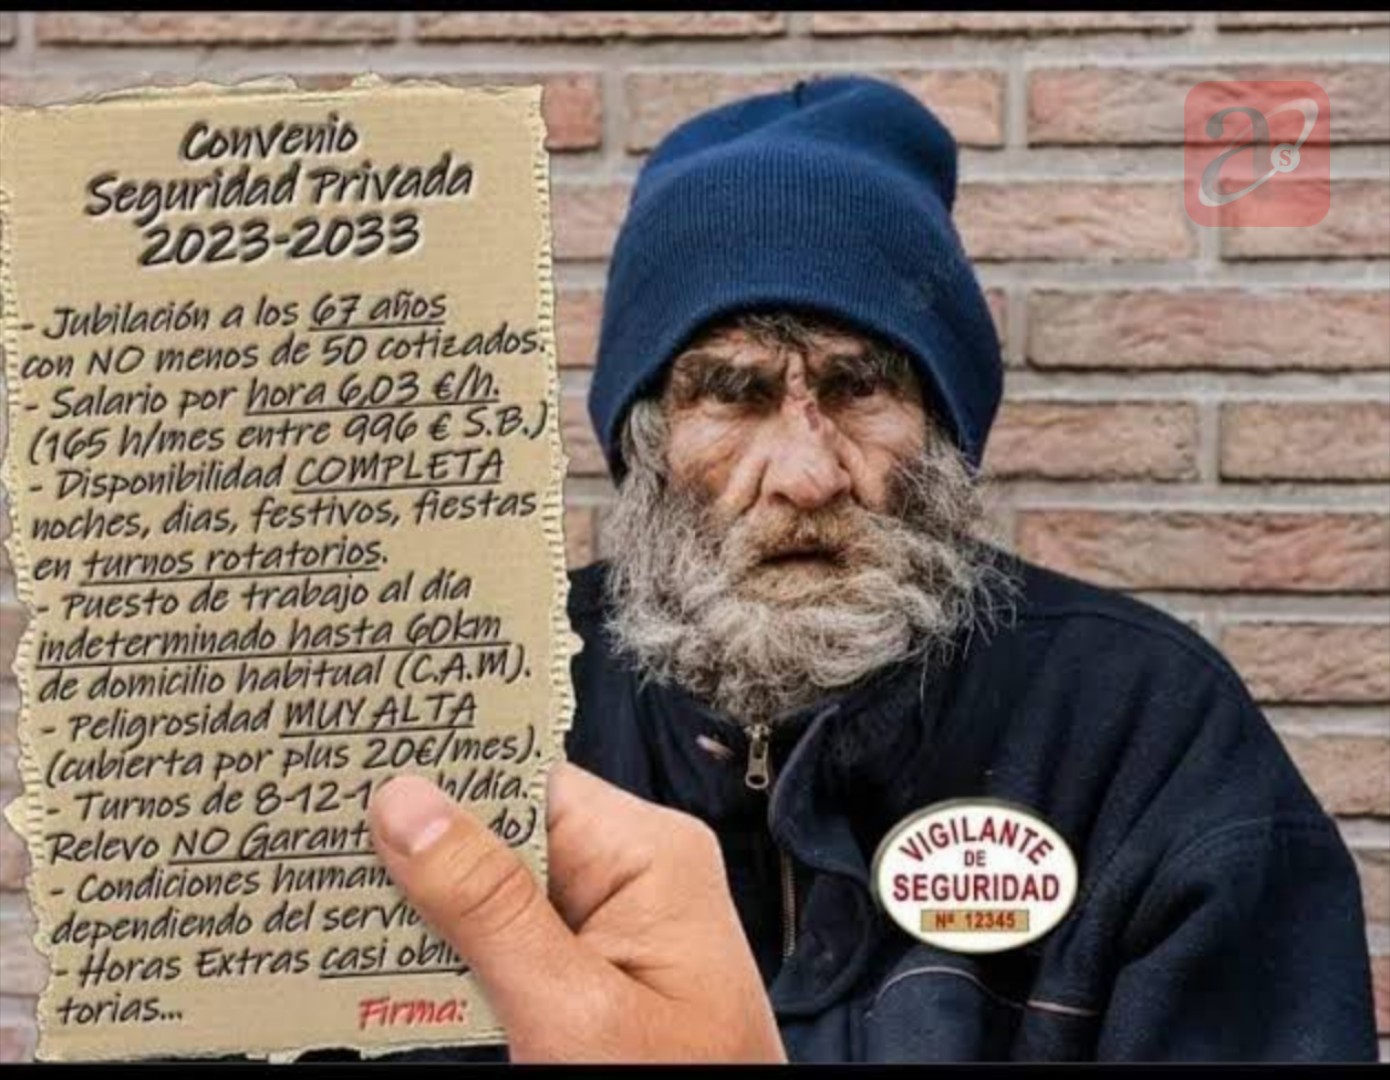 Convenio
Seguridad Privada
2023-2033
- Jubilación a los 67 años
con NO menos de 50 cotizados.
- Salario por hora 6,03 €/h.
(165 h/mes entre 996 € S.B.)
- Disponibilidad COMPLETA
noches, dias, festivos, fiestas
en turnos rotatorios.
- Puesto de trabajo al día
indeterminado hasta 60km
de domicilio habitual (C.A.M).
- Peligrosidad MUY ALTA
(cubierta por plus 20€/mes).
- Turnos de 8-12- h/día.
Relevo NO
- Condiciones
dependiendo del
- Horas Extras casi
torias...
Firma:
VIGILANTE
DE
SEGURIDAD
Nº 12345
a
s